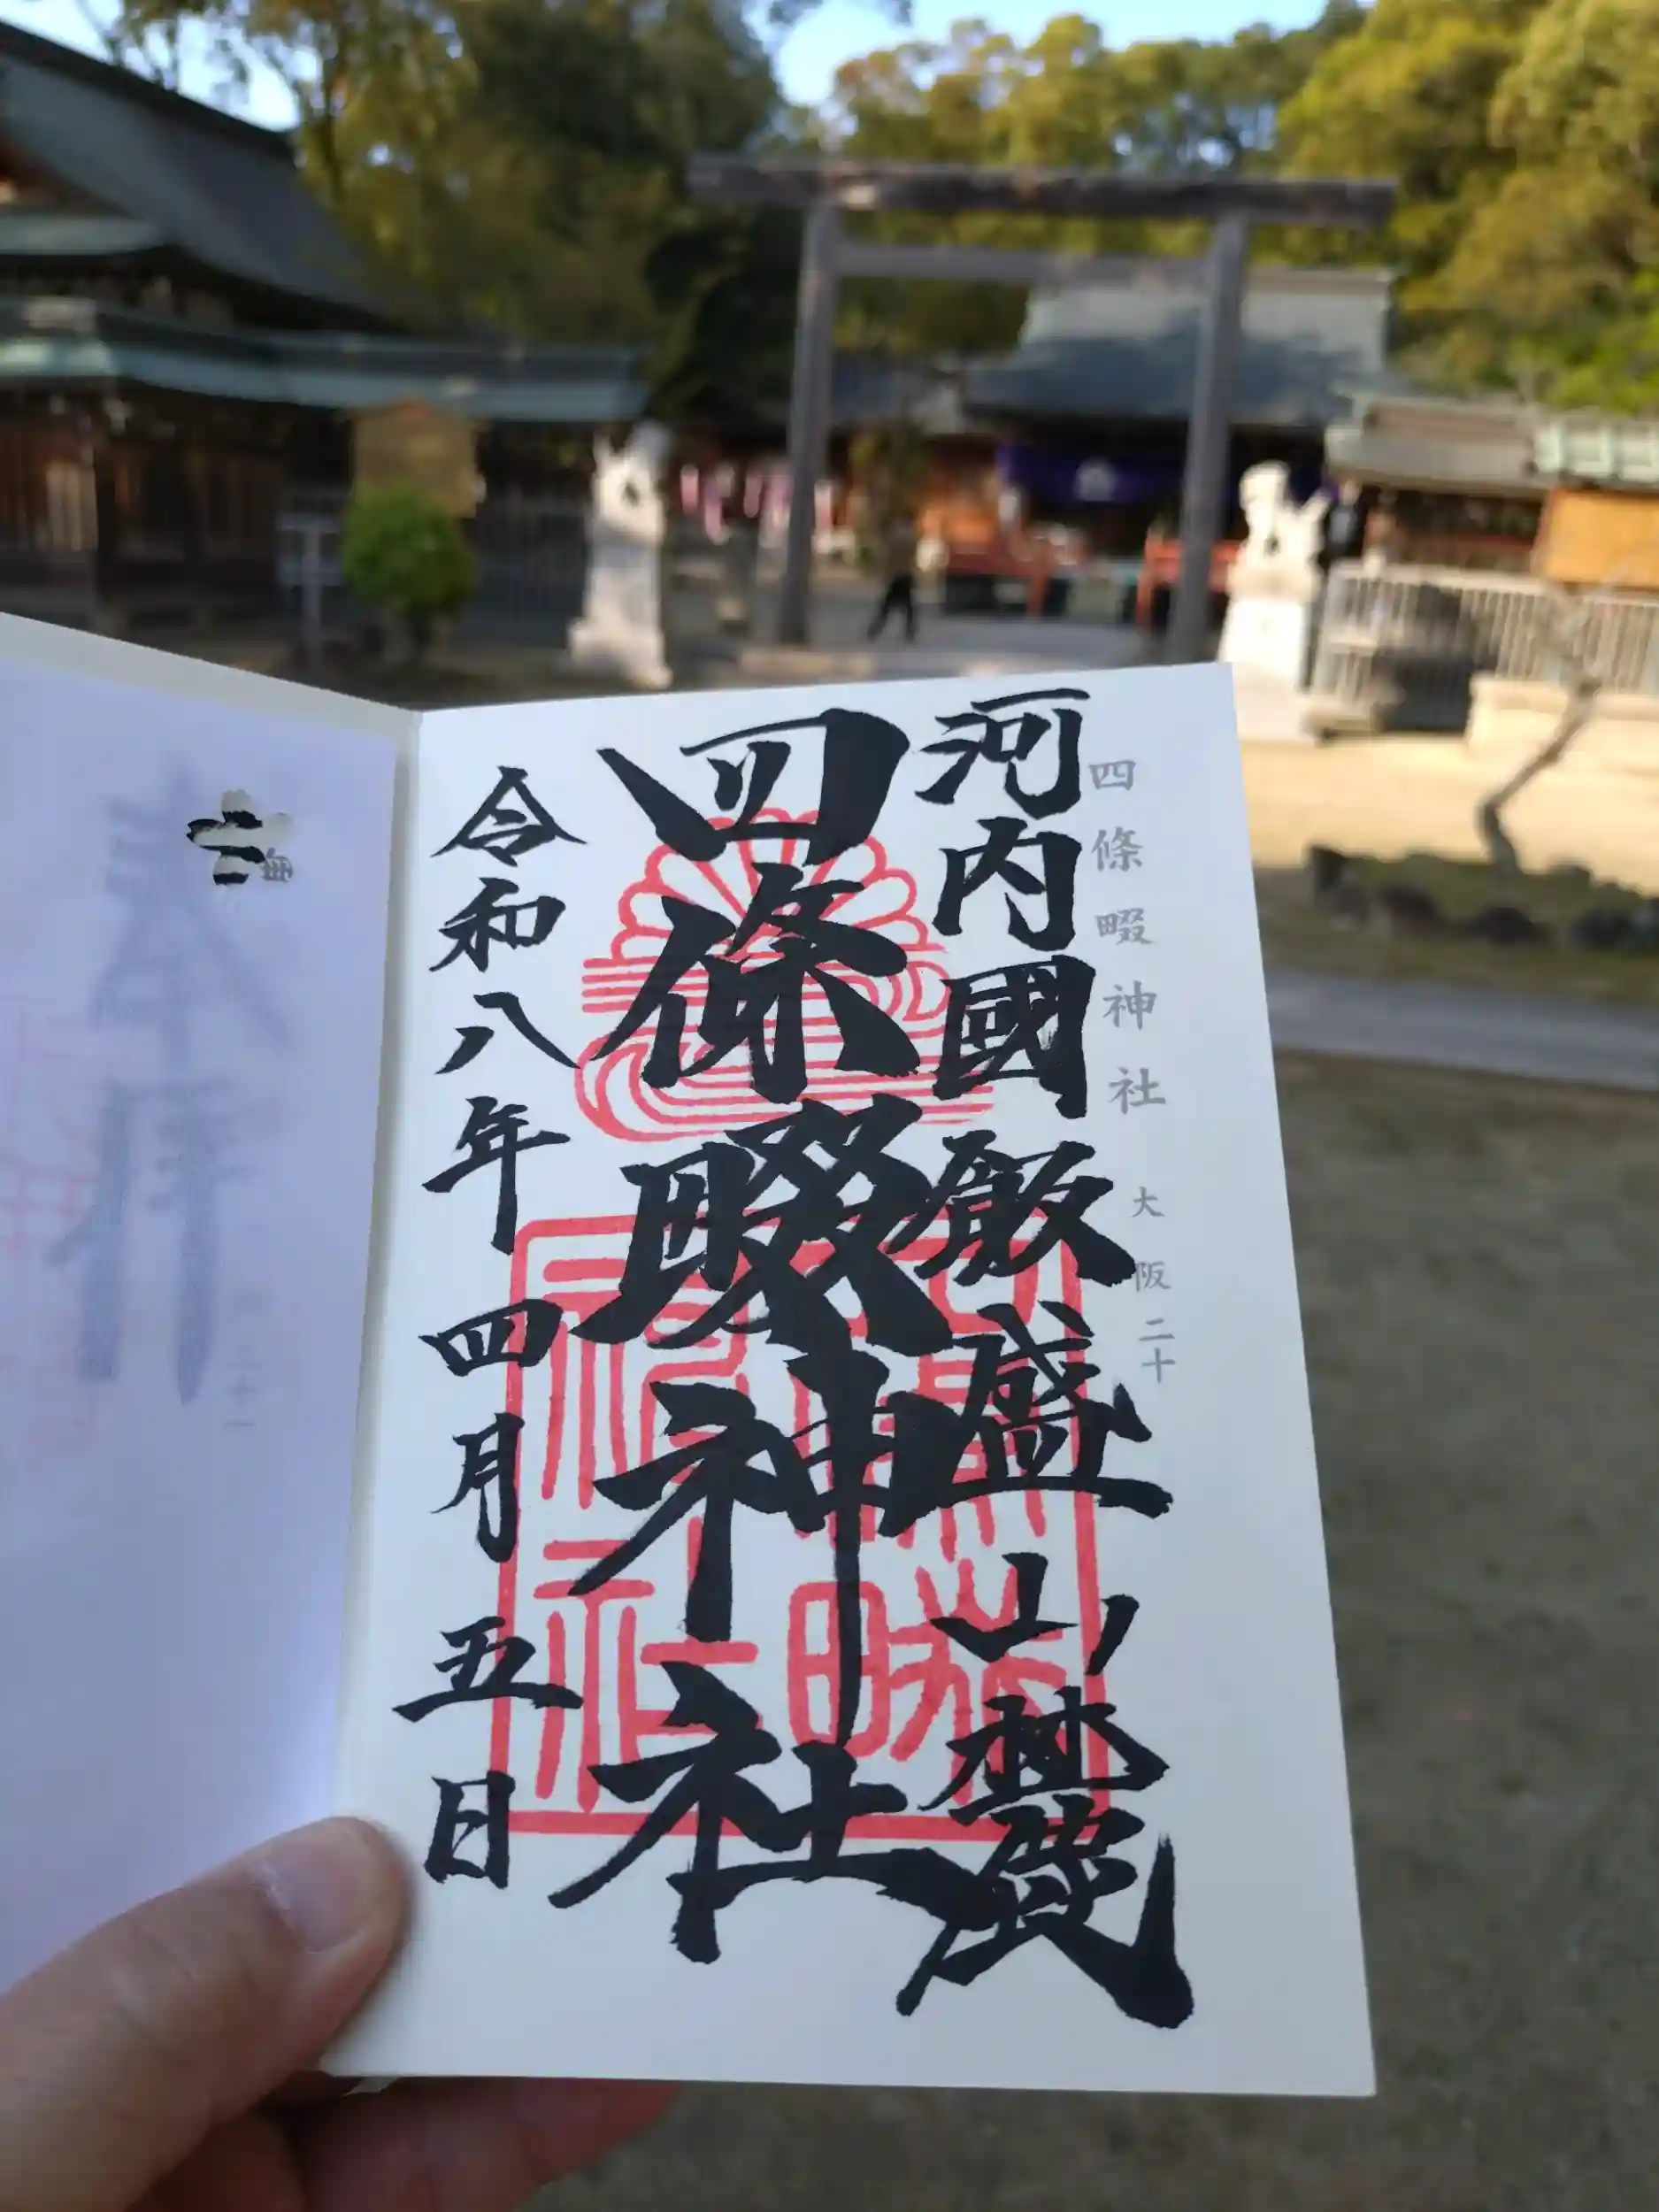 四條畷神社 大阪二十
河内國飯盛山麓
四條畷神社
令和八年四月五日